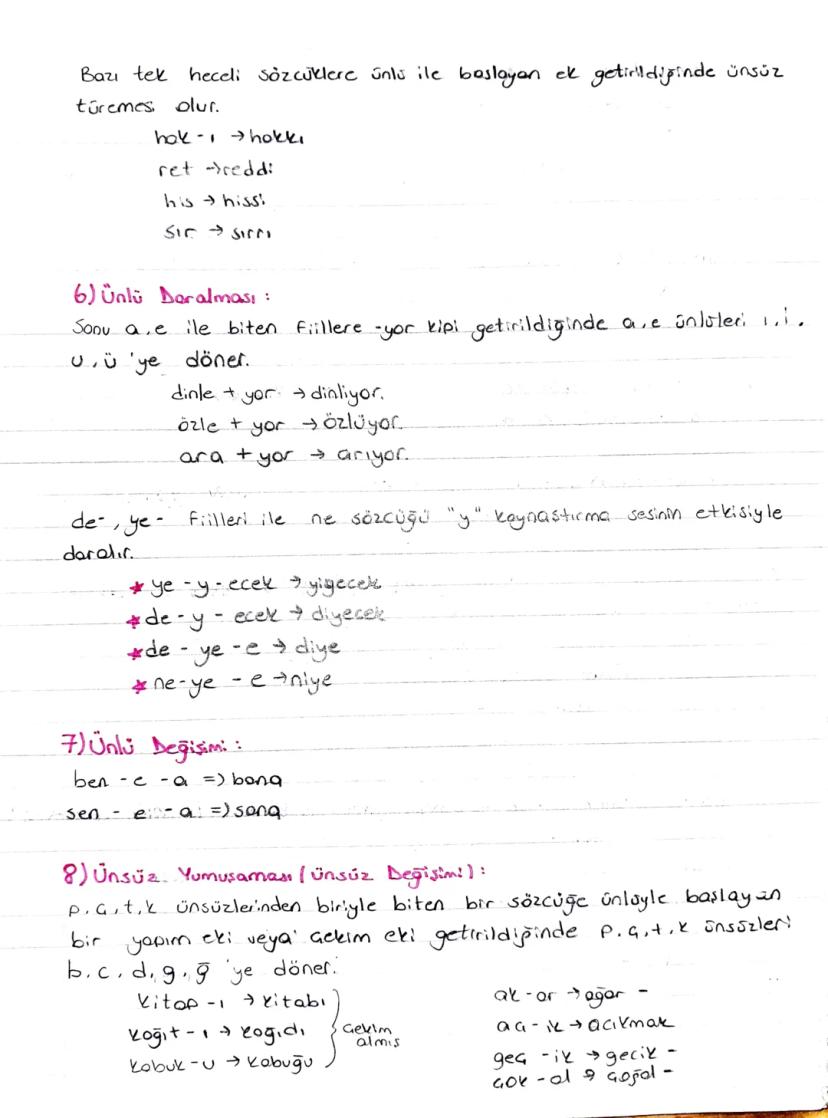 Bazı tek heceli sözcüklere ünlü ile başlayan ek getirildiğinde ünsüz
türemesi olur.
hak - ı → hakkı
ret → reddi
his → hissi
sır → sırrı
6) Ünlü Daralması :
Sonu a, e ile biten fiillere -yor kipi getirildiğinde a, e ünlüleri ı, i,
u, ü 'ye döner.
dinle + yor → dinliyor.
özle + yor → özlüyor.
ara + yor → arıyor.
de-, ye- fiilleri ile ne sözcüğü "y" kaynaştırma sesinin etkisiyle
daralır.
* ye - y - ecek → yiyecek
* de - y - ecek → diyecek
* de - ye - e → diye
* ne - ye - e → niye
7) Ünlü Değişimi :
ben - e - a => bana
sen - e - a => sana
8) Ünsüz Yumuşaması (ünsüz Değişimi) :
p, ç, t, k ünsüzlerinden biriyle biten bir sözcüğe ünlüyle başlayan
bir yapım eki veya çekim eki getirildiğinde p, ç, t, k ünsüzleri
b, c, d, g, ğ 'ye döner.
kitap - ı → kitabı
kağıt - ı → kağıdı
kabuk - u → kabuğu
çekim
almış
ak - ar → ağar -
aç - ık → acıkmak
geç - ik → gecik -
çok - al → çoğal -